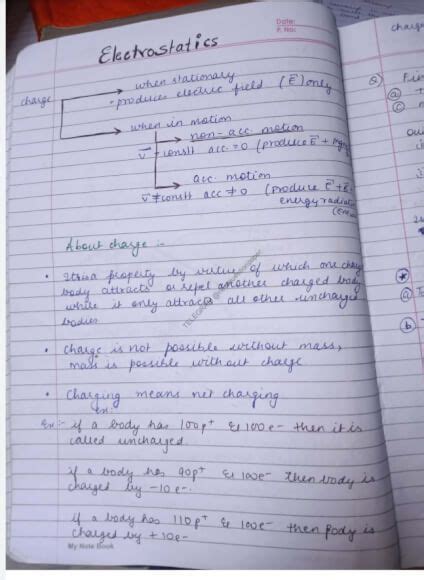 Date:
P. No:
Electrostatics
charge
when stationary
• produces electric field (E⃗) only
when in motion
non-acc. motion
v⃗ = constt acc. = 0 (produce E⃗ +
acc. motion
v⃗ ≠ const acc ≠ 0 (produce E⃗ +
energy
About charge :-
• Itisa property by virtue of which one
body attracts or repel another charged body
while it only attracts all other uncharged
bodies
• charge is not possible without mass,
mass is possible without charge
• Charging means net charging
Ex:
Ex:- if a body has 100p+ & 100e- then it is
called uncharged.
if a body has 90p+ & 100e- then body is
charged by -10e-.
if a body has 110p+ & 100e- then body is
charged by +10e-
My Note Book
charge
Q
ⓐ
ⓒ
ⓐ
ⓑ